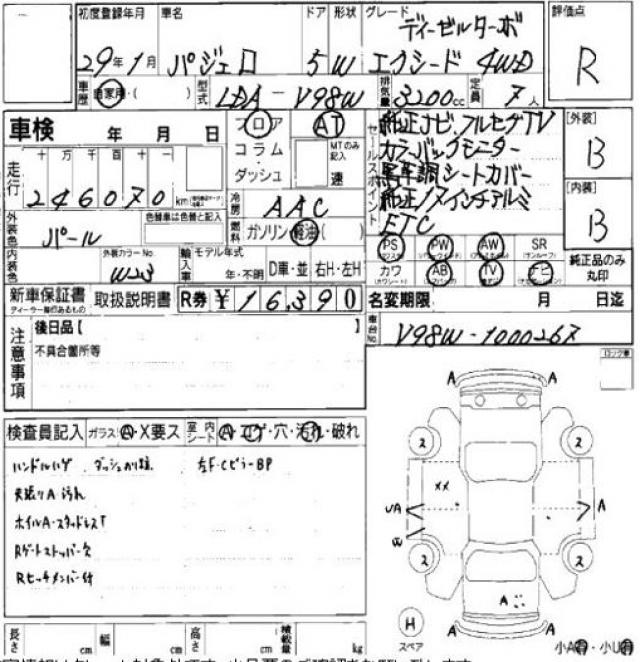 初度登録年月 車名 ドア 形状 グレード 評価点
29年1月 パジェロ 5 W ディーゼルターボ
エクシード 4WD R
車歴 自家用・( ) 型式 LDA-V98W 排気量 3200cc 定員 7人
車検 年 月 日 フロア AT
コラム MTのみ記入
ダッシュ 速
セールスポイント
純正ナビ、フルセグTV
カラーバックモニター
黒革調シートカバー
純正18インチアルミ
ETC
[外装] B
[内装] B
純正品のみ丸印
走行 十 万 千 百 十 一
246070km
冷房 AAC
外装色 パール 色替車は色替と記入
燃料 ガソリン・軽油( )
内装色 外装カラーNo. W23
輸入車 モデル年式 年・不明 D車・並 右H・左H
PS PW AW SR
カワ AB TV ナビ
新車保証書 取扱説明書 R券 ¥16,390
名変期限 月 日迄
車台No. V98W-1000267
注意事項 後日品【 】
不具合箇所等
検査員記入 ガラス A・X要ス 室内シート A・コゲ・穴・汚れ・破れ
ハンドルハゲ 左F・CピラーBP
天張りA汚れ
ホイルA・スタッドレスT
Rゲートストッパー欠
Rヒッチメンバー付
A A
2 2
XX
UA A
W
2 2
A
A A
H
スペア
小A有・小U有
長さ cm 幅 cm 高さ cm 積載量 kg